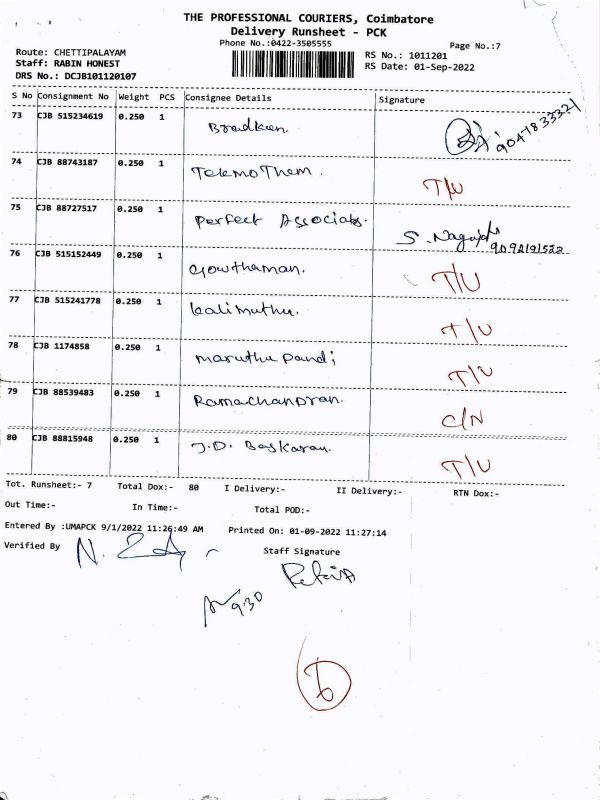 THE PROFESSIONAL COURIERS, Coimbatore
Delivery Runsheet - PCK
Phone No.:0422-3505555
Page No.:7
Route: CHETTIPALAYAM
RS No.: 1011201
Staff: RABIN HONEST
RS Date: 01-Sep-2022
DRS No.: DCJB101120107
S No Consignment No Weight PCS Consignee Details Signature
73 CJB 515234619 0.250 1 9047833321
74 CJB 88743187 0.250 1 TekmoTherm. T/U
75 CJB 88727517 0.250 1 Perfect Associats. S.
76 CJB 515152449 0.250 1 Gowthaman. T/U
77 CJB 515241778 0.250 1 Kalimuthu. T/U
78 CJB 1174858 0.250 1 Maruthu Pandi T/U
79 CJB 88539483 0.250 1 Ramachandran. C/N
80 CJB 88815948 0.250 1 J.D. Baskaran. T/U
Tot. Runsheet:- 7 Total Dox:- 80 I Delivery:- II Delivery:- RTN Dox:-
Out Time:- In Time:- Total POD:-
Entered By :UMAPCK 9/1/2022 11:26:49 AM Printed On: 01-09-2022 11:27:14
Verified By Staff Signature
9.30